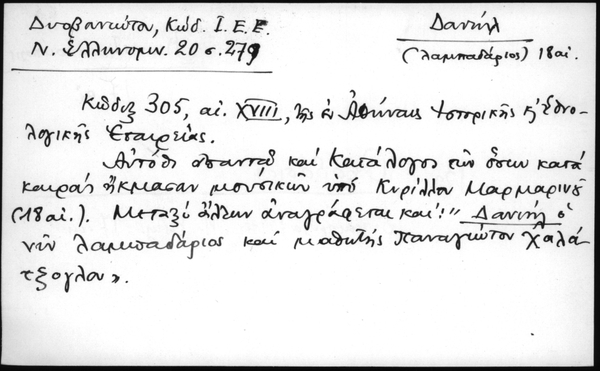 Δυοβουνιώτου, Κώδ. Ι.Ε.Ε.
Ν. Ἑλληνομν. 20 σ. 279
Δανιήλ
(λαμπαδάριος) 18 αἰ.
Κῶδιξ 305, αἰ. XVIII, τῆς ἐν Ἀθήναις Ἱστορικῆς κ' Ἐθνο-
λογικῆς Ἑταιρείας.
Αὐτόθι ἀπαντᾷ καὶ Κατάλογος τῶν ὅσων κατὰ
καιροὺς ἤκμασαν μουσικῶν ὑπὸ Κυρίλλου Μαρμαρινοῦ
(18 αἰ.). Μεταξὺ ἄλλων ἀναγράφεται καί: "Δανιήλ ὁ
νῦν λαμπαδάριος καὶ μαθητὴς Παναγιώτου Χαλά-
τζογλου».